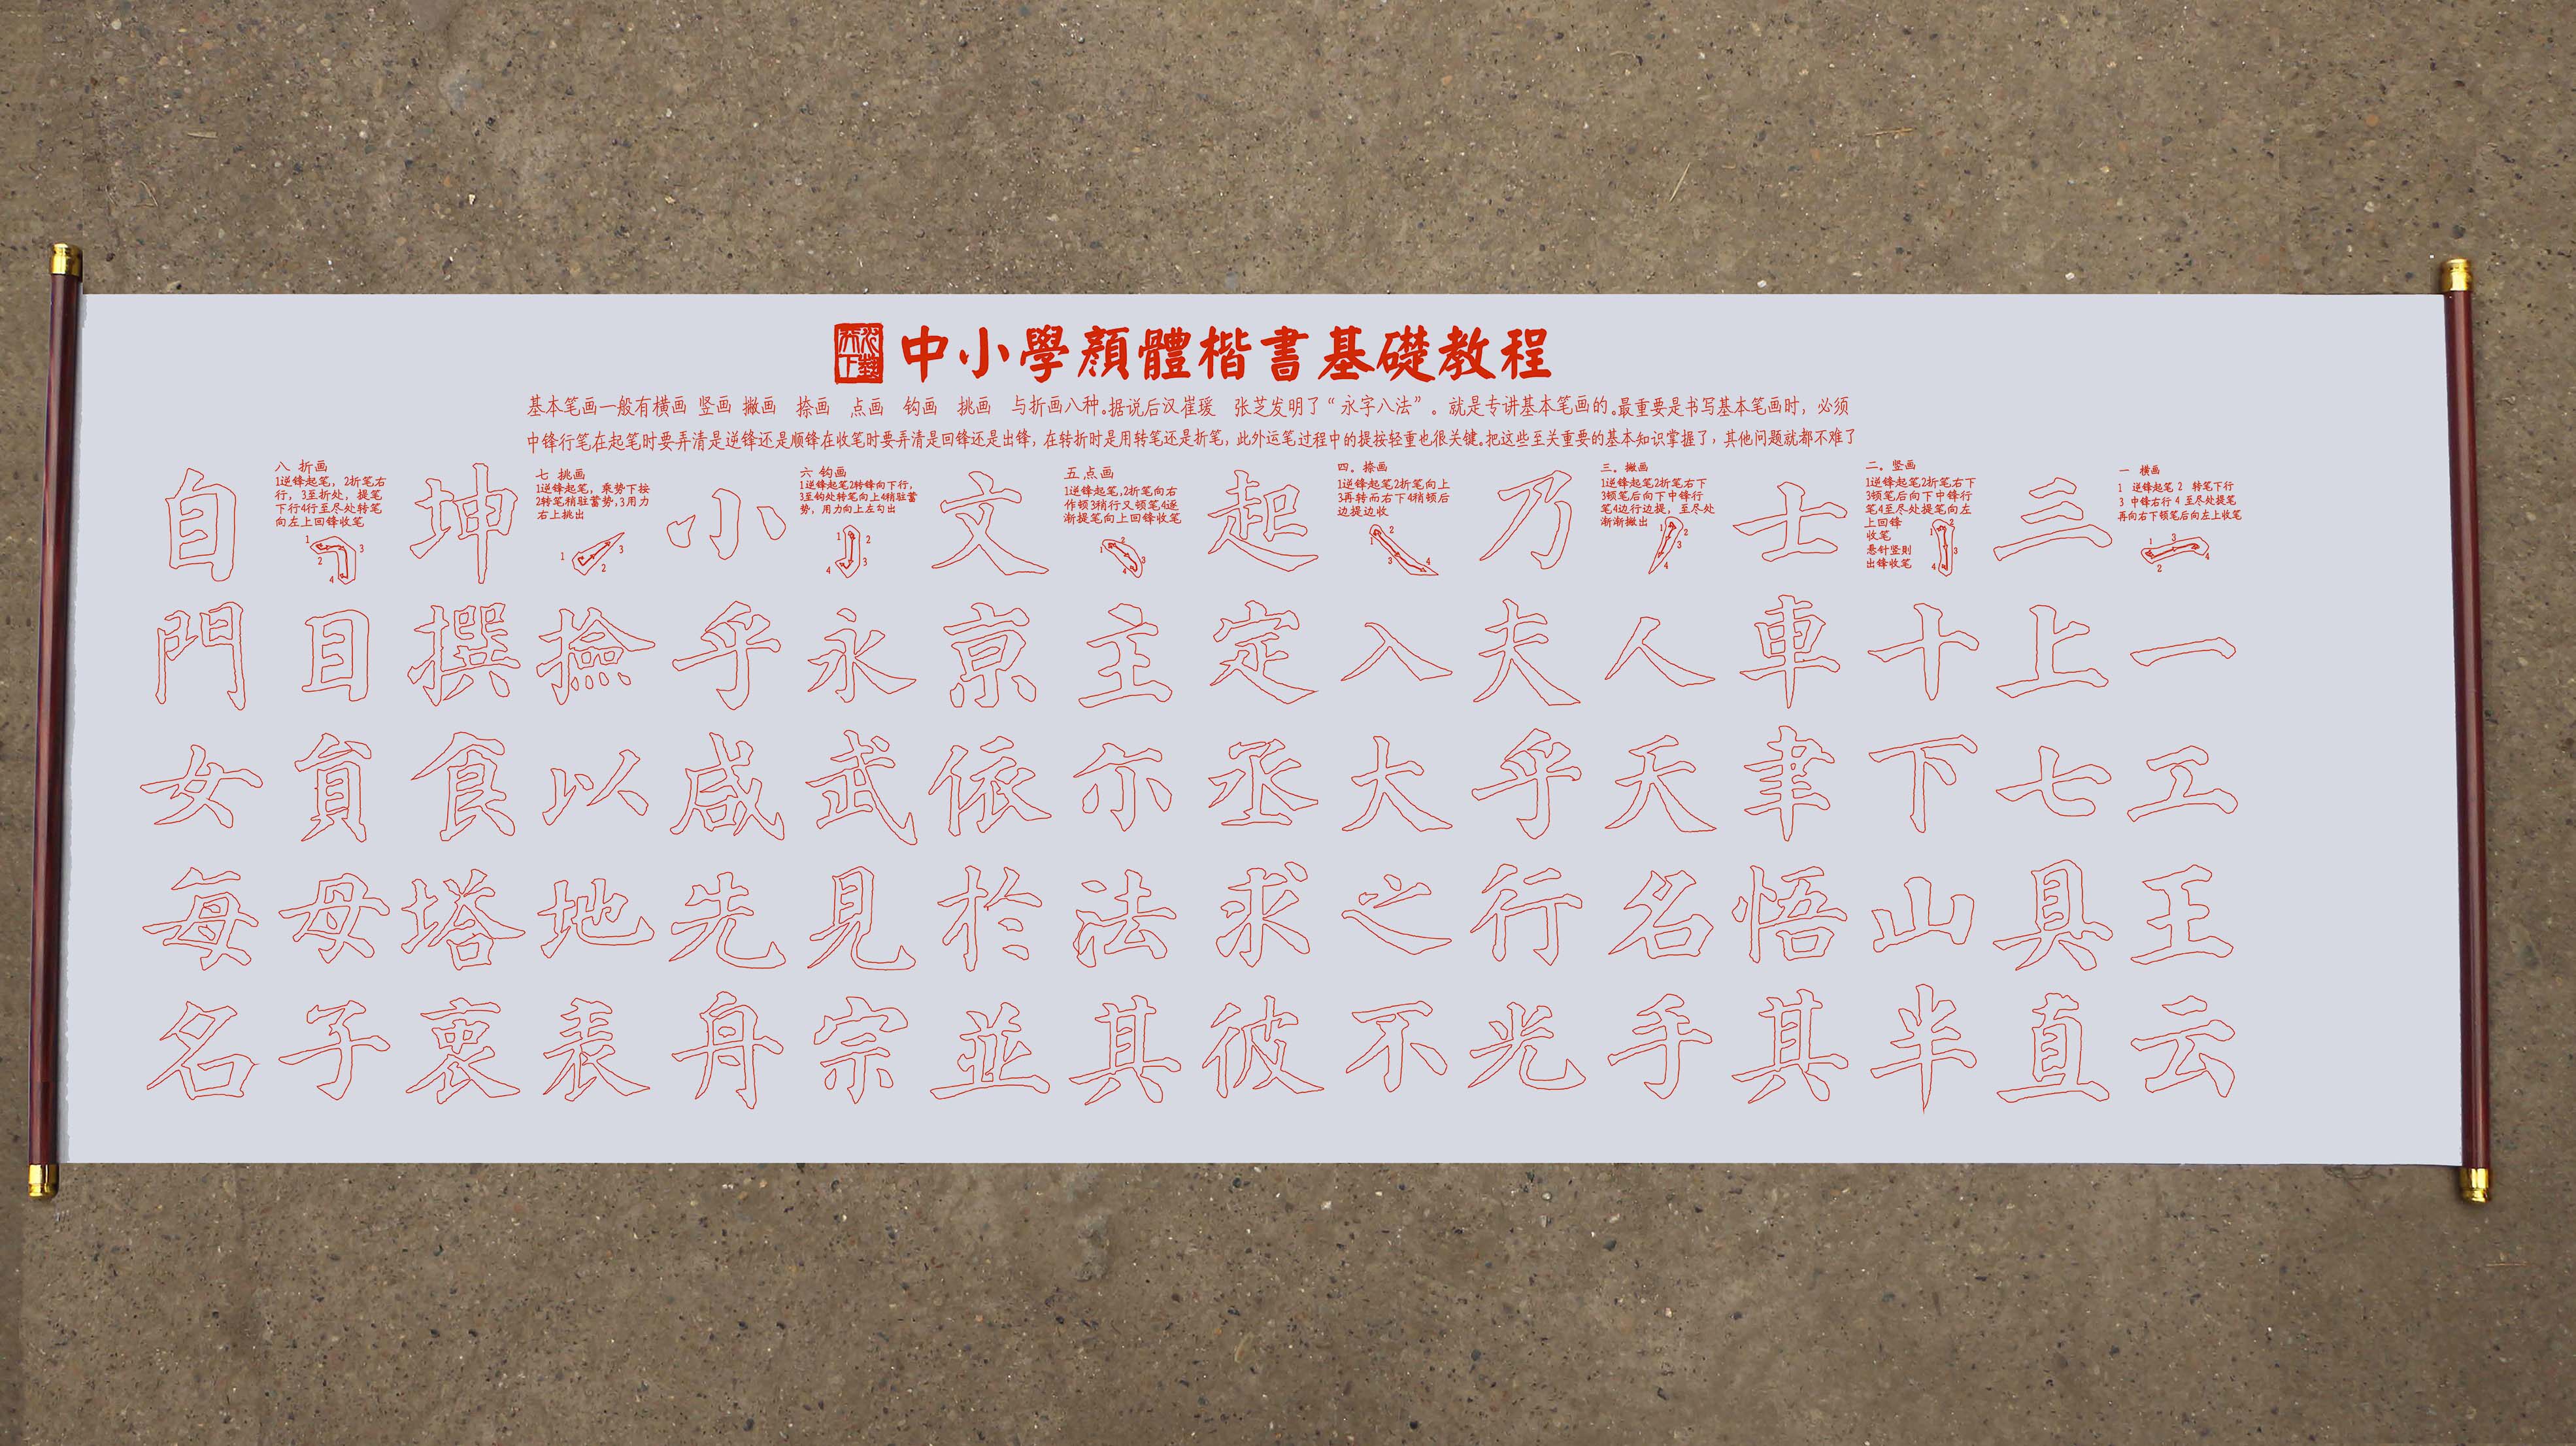 中小學顔體楷書基礎教程
基本笔画一般有横画 竖画 撇画 捺画 点画 钩画 挑画 与折画八种。据说后汉崔瑗 张芝发明了“永字八法”。就是专讲基本笔画的。最重要是书写基本笔画时，必须
中锋行笔在起笔时要弄清是逆锋还是顺锋在收笔时要弄清是回锋还是出锋，在转折时是用转笔还是折笔，此外运笔过程中的提按轻重也很关键。把这些至关重要的基本知识掌握了，其他问题就都不难了
一 横画
1 逆锋起笔 2 转笔下行
3 中锋右行 4 至尽处提笔
再向右下顿笔后向左上收笔
1
2
3
4
一
工
王
云
三
上
七
具
直
二。竖画
1逆锋起笔2折笔右下
3顿笔后向下中锋行
笔4至尽处提笔向左
上回锋
收笔
悬针竖则
出锋收笔
1
2
3
4
十
下
山
半
士
車
聿
悟
其
三。撇画
1逆锋起笔2折笔右下
3顿笔后向下中锋行
笔4边行边提，至尽处
渐渐撇出
1
2
3
4
人
天
名
手
乃
夫
乎
行
光
四。捺画
1逆锋起笔2折笔向上
3再转而右下4稍顿后
边提边收
1
2
3
4
入
大
之
不
起
定
丞
求
彼
五点画
1逆锋起笔，2折笔向右
作顿3稍行又顿笔4逐
渐提笔向上回锋收笔
1
2
3
4
主
尓
法
其
文
京
依
於
並
六 钩画
1逆锋起笔2转锋向下行，
3至钩处转笔向上4稍驻蓄
势，用力向上左勾出
1
2
3
4
永
武
見
宗
小
乎
咸
先
舟
七 挑画
1逆锋起笔，乘势下按
2转笔稍驻蓄势，3用力
右上挑出
1
2
3
撿
以
地
表
坤
撰
食
塔
裏
八 折画
1逆锋起笔，2折笔右
行，3至折处，提笔
下行4行至尽处转笔
向左上回锋收笔
1
2
3
4
目
貟
母
子
自
門
女
每
名